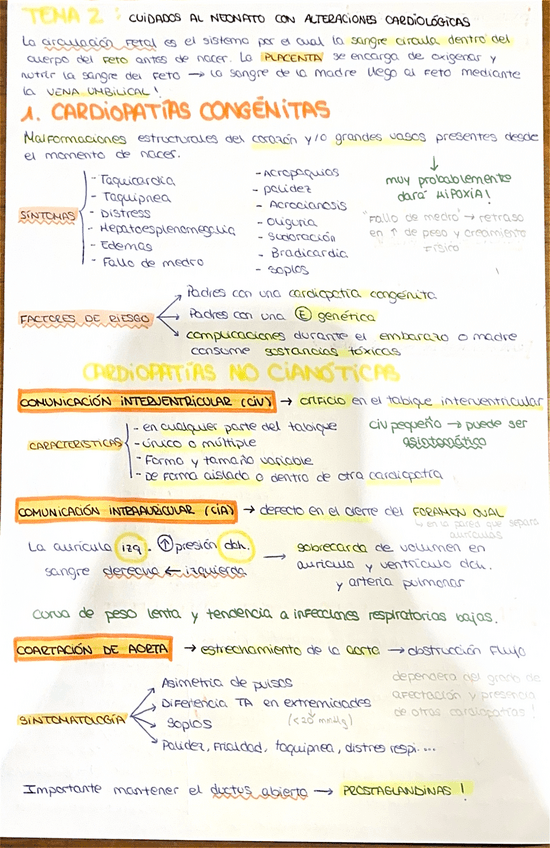 TEMA 2: CUIDADOS AL NEONATO CON ALTERACIONES CARDIOLÓGICAS
La circulación Fetal es el sistema por el cual la sangre circula dentro del
cuerpo del Feto antes de nacer. La PLACENTA se encarga de oxigenar y
nutrir la sangre del Feto → La sangre de la madre llega al Feto mediante
la VENA UMBILICAL!
1. CARDIOPATÍAS CONGÉNITAS
Malformaciones estructurales del corazón y/o grandes vasos presentes desde
el momento de nacer.
↓
muy probablemente
dará HIPOXIA!
SÍNTOMAS
- Taquicardia
- Taquipnea
- Distress
- Hepatoesplenomegalia
- Edemas
- Fallo de medro
- Acropaquias
- Palidez
- Acrocianosis
- Oliguria
- Sudoración
- Bradicardia
- Soplos
"Fallo de medro" → retraso
en ↑ de peso y crecimiento
físico
FACTORES DE RIESGO
Padres con una cardiopatía congénita
Padres con una Ⓔ genética
complicaciones durante el embarazo o madre
consume sustancias tóxicas
CARDIOPATÍAS NO CIANÓTICAS
COMUNICACIÓN INTERVENTRICULAR (CIV) → orificio en el tabique interventricular
CARACTERÍSTICAS
- en cualquier parte del tabique
- Único o múltiple
- Forma y tamaño variable
- De forma aislada o dentro de otra cardiopatía
CIV pequeño → puede ser
asintomático
COMUNICACIÓN INTERAURICULAR (CIA) → defecto en el cierre del FORAMEN OVAL
↳ en la pared que separa
aurículas
La aurícula izq. ↑ presión dch.
sangre derecha ← izquierda
→ sobrecarga de volumen en
aurícula y ventrículo dch.
y arteria pulmonar
curva de peso lenta y tendencia a infecciones respiratorias bajas.
COARTACIÓN DE AORTA → estrechamiento de la aorta → obstrucción Flujo
dependerá del grado de
afectación y presencia
de otras cardiopatías!
SINTOMATOLOGÍA
Asimetría de pulsos
Diferencia TA en extremidades
(<20 mmHg)
Soplos
Palidez, Frialdad, taquipnea, distres respi....
Importante mantener el ductus abierto → PROSTAGLANDINAS!